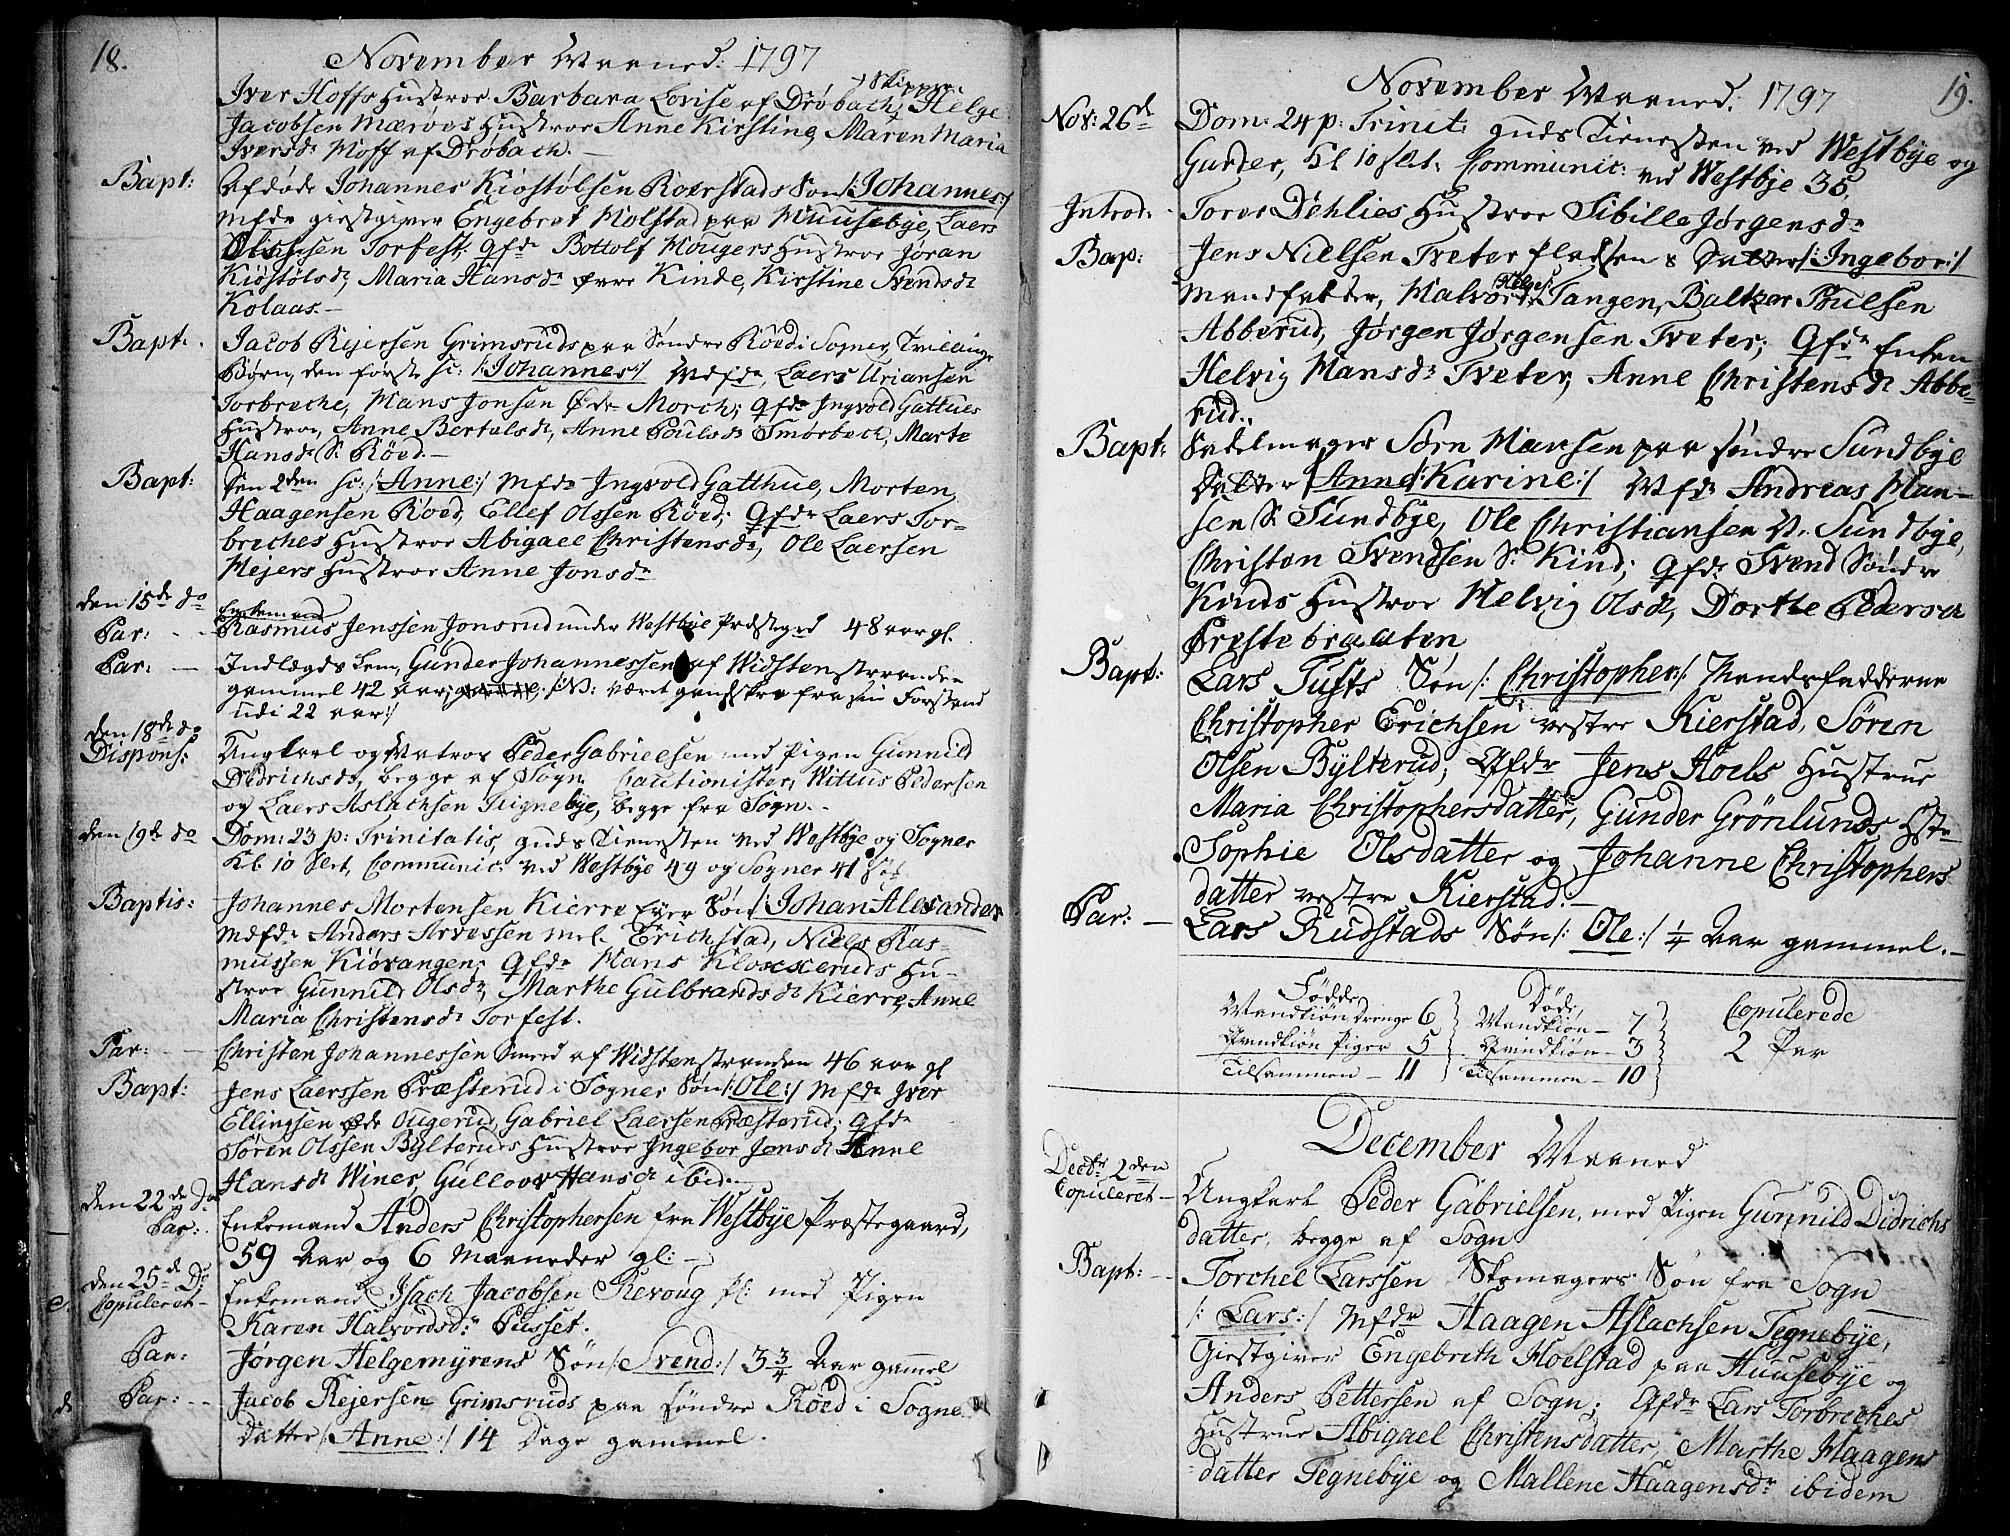 18.
November Maaned: 1797
Iver Hoffs Hustroe Barbara Lovise af Drøbach, Skipper Helge
Jacobsen Mærøes Hustroe Anne Kirstine, Maren Maria
Iversd: Hoff af Drøbach.
Bapt: Afdøde Johannes Kiøstølsen Roerstads Søn /:Johannes:/
Mfdr giestgiver Engebret Holstad paa Huusebye, Laers
Olussen Torfest; Qfdr Bottolf Hougers Hustroe Jøran
Kiøstølsdr, Maria Hansdr Kinde, Kirstine Svendsdr
Kolaas.
Bapt: Jacob Rejersen Grimsruds paa Søndre Røed i Sogner, Tvillinge
Børn, den første sc: /:Johannes:/ Mfdr, Laers Uriansen
Torbreche, Hans Jonsen Øde Morch; Qfdr Ingvold Gatthues
Hustroe, Anne Bertelsdr, Anne Poulsdr Smørbech, Marte
Hansdr S: Røed.
Bapt: Den 2den sc: /:Anne:/ Mfdr Ingvold Gatthue, Morten
Haagensen Røed, Ellef Olssen Røed; Qfdr Laers Tor-
breches Hustroe Abigael Christensdr, Ole Laersen
Mejers Hustroe Anne Jonsdr
den 15de do
Par: Enkemand Rasmus Jenssen Jonsrud under Westbye Præstegrd 48 aar gl.
Par: Indlægdslem, Gunder Johannessen af Widstenstranden
gammel 42 aar, /:NB: været gandske fra sin Forstand
udi 22 aar:/
den 18de do
Dispons: Ungkarl og Matros Peder Gabrielsen med Pigen Gunnild
Didrichsdr, begge af Sogn. Cautionister, Wittus Pedersen
og Laers Aslachsen Teignebye, begge fra Sogn.
den 19de do Dom: 23 p: Trinitatis, guds Tienesten ved Westbye og Sogner
Kl: 10 Slet, Communic: ved Westbye 49 og Sogner 41
Baptis: Johannes Mortensen Kierre Eyer Søn /:Johan Alexander
Mdfdr Anders Arvessen mel. Erichstad, Niels Ras-
mussen Kiøvangen; Qfdr Hans Kloxeruds Hu-
stroe Gunnild Olsdr, Marthe Gulbrandsdr Kierre, Anne
Maria Christensdr Torfest.
Par: Christen Johannessen Smed af Widstenstranden 46 aar gl
Bapt: Jens Laerssen Præsterud i Sogner Søn /:Ole:/ Mfdr Iver
Ellingsen Øde Ougerud, Gabriel Laersen Præsterud; Qfdr
Søren Olssen Bylteruds Hustroe Ingebor Jensdr Anne
Hansdr Winer, Gulloov Hansdr ibid.
den 22de Do
Par: Enkemand Anders Christophersen fra Westbye Præstegaard,
59 Aar og 6 Maaneder gl:
den 25de Do
Copuleret Enkemand Isach Jacobsen Revoug pl: med Pigen
Karen Halvordsdr Pusset.
Par: Jørgen Helgemyrens Søn /:Svend:/ 3 3/4 Aar gammel
Par: Jacob Rejersen Grimsruds paa søndre Røed i Sogne
Datter /:Anne:/ 14 Dage gammel.
November Maaned: 1797
19.
Nov: 26de Dom: 24 p: Trinit: guds Tienesten ved Westbye og
Garder, Kl 10 slet. Communic: ved Westbye 35
Introd: Tores Dehlies Hustroe Sibille Jørgensdr
Bap: Jens Nielsen Tveter Pladsens Datter /:Ingebor:/
Mandfadder, Halvor Helges: Tangen, Baltzer Poulsen
Abberud, Jørgen Jørgensen Tveter; Qfdr Enken
Helvig Hansdr Tveter, Anne Christensdr Abbe-
rud.
Bapt: Sadelmager Sørn Hansen paa søndre Sundbye
Datter /:Anne Karine:/ Mfdr Andreas Han-
sen S: Sundbye, Ole Christiansen N: Sundbye,
Christen Svendsen S: Kind; Qfdr Svend Søndre
Kinds Hustroe Helvig Olsdr, Dorthe Pedersdr
Prestebraaten
Bapt: Lars Tufts Søn /:Christopher:/ Mandsfadderne
Christopher Erichsen vestre Kierstad, Søren
Olsen Bylterud; Qfdr Jens Hoels Hustrue
Maria Christophersdatter, Gunder Grønlunds Hste-
Sophie Olsdatter og Johanne Christophers
datter vestre Kierstad.
Par: Lars Rudstads Søn /:Ole:/ 1/4 Aar gammel.
Fødde, Døde, Copulerede
Mandkiøn Drenge 6 Mandkiøn 7 2 Par
Qvindkiøn Piger 5 Qvindkiøn 3
Tilsammen 11 Tilsammen 10
December Maaned
Decbr 2den
Copuleret Ungkarl Peder Gabrielsen, med Pigen Gunnild Didrichs
datter, begge af Sogn
Bapt: Torchel Larssen Skomagers Søn fra Sogn
/:Lars:/ Mfdr Haagen Aslachsen Tegnebye,
Giestgiver Engebreth Hoelstad paa Huusebye og
Anders Pettersen af Sogn; Qfdr Lars Torbreches
Hustrue Abigael Christensdatter, Marthe Haagens
datter Tegnebye og Mallene Haagensdr ibidem